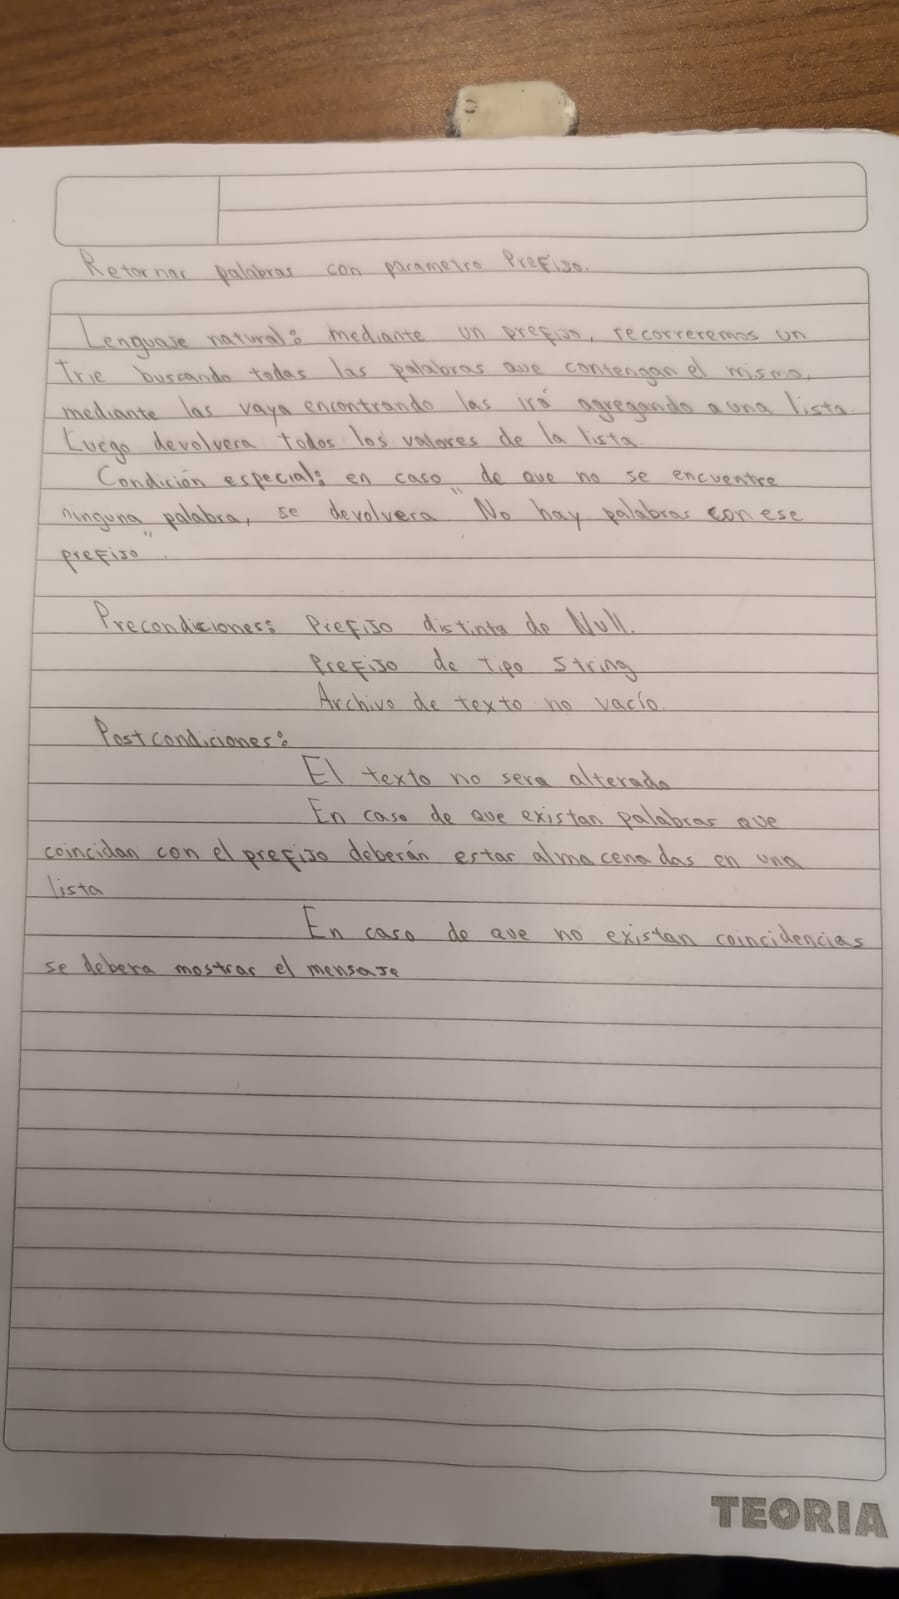 Retornar palabras con parametro Prefijo.
Lenguaje natural: mediante un prefijo, recorreremos un
Trie buscando todas las palabras que contengan el mismo,
mediante las vaya encontrando las irá agregando a una lista.
Luego devolvera todos los valores de la lista.
Condición especial: en caso de que no se encuentre
ninguna palabra, se devolvera "No hay palabras con ese
prefijo".
Precondiciones: Prefijo distinto de Null.
Prefijo de tipo String
Archivo de texto no vacío.
Postcondiciones:
El texto no sera alterado
En caso de que existan palabras que
coincidan con el prefijo deberán estar almacenadas en una
lista
En caso de que no existan coincidencias
se debera mostrar el mensaje
TEORIA